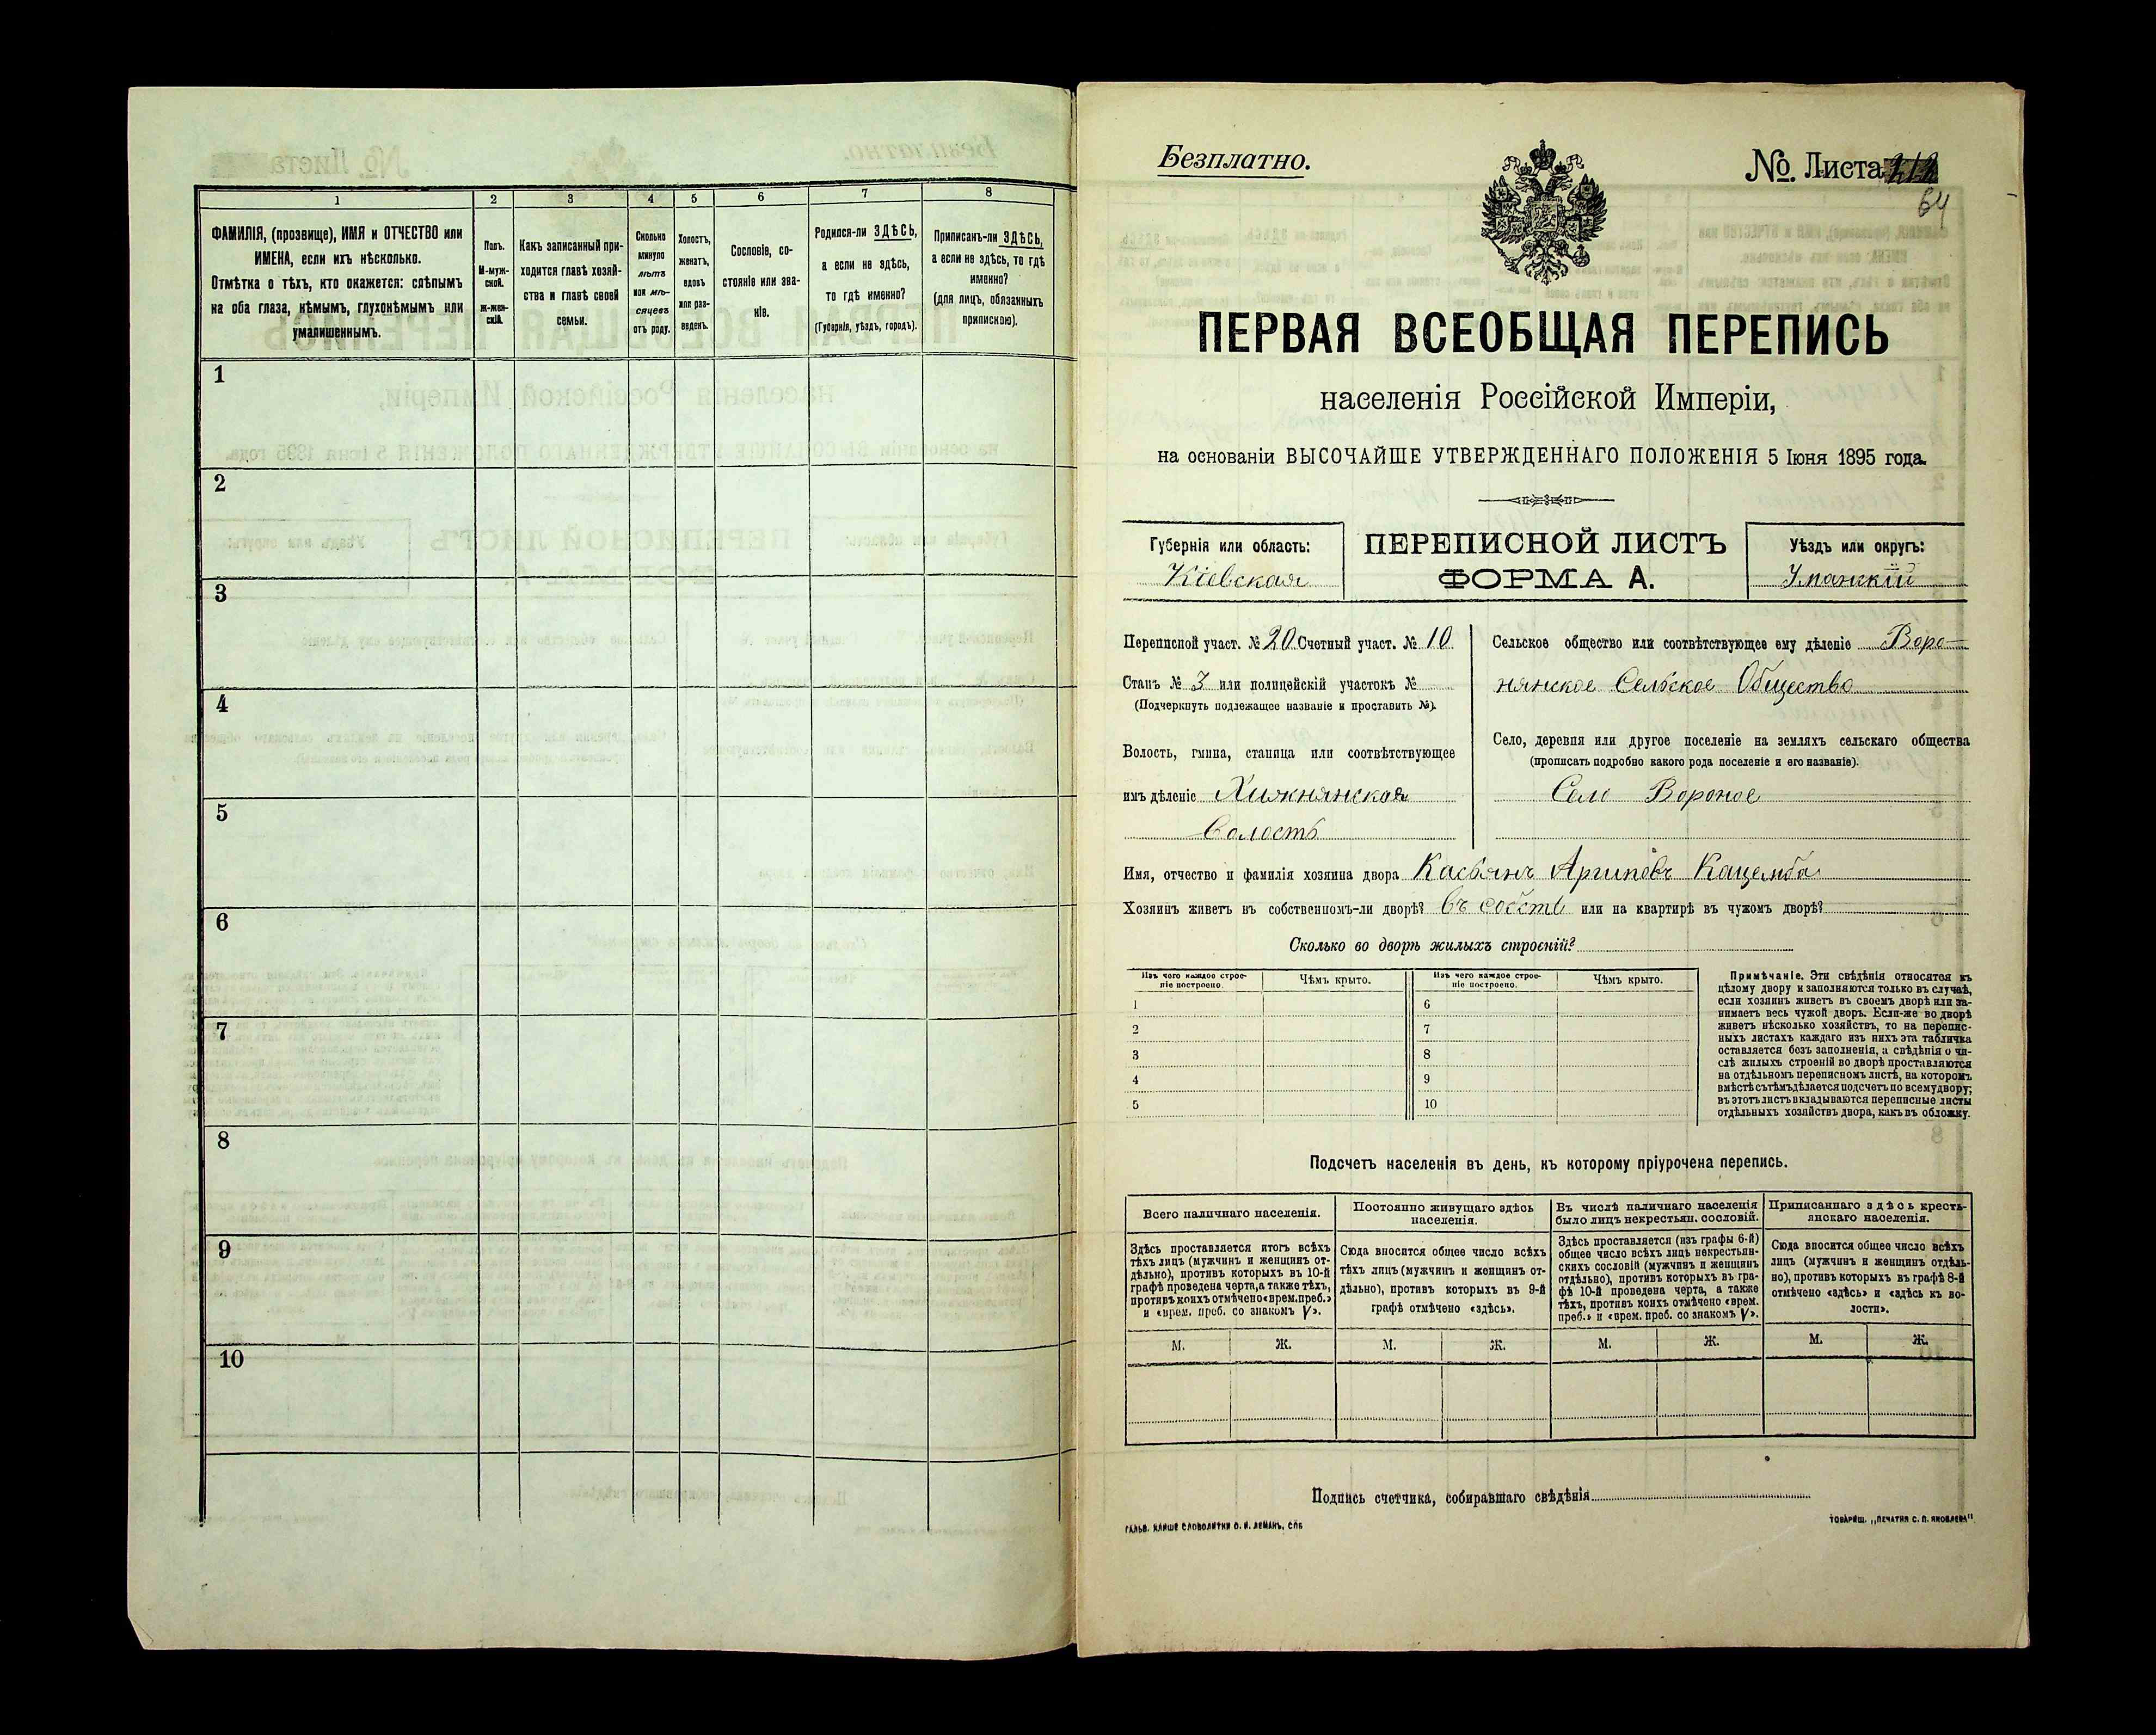 1
2
3
4
5
6
7
8
ФАМИЛІЯ, (прозвище), ИМЯ и ОТЧЕСТВО или
ИМЕНА, если ихъ нѣсколько.
Отмѣтка о тѣхъ, кто окажется: слѣпымъ
на оба глаза, нѣмымъ, глухонѣмымъ или
умалишеннымъ.
Полъ.
М-муж-
ской.
ж-жен-
скій.
Какъ записанный при-
ходится главѣ хозяй-
ства и главѣ своей
семьи.
Сколько
минуло
лѣтъ
или мѣ-
сяцевъ
отъ роду.
Холостъ,
женатъ,
вдовъ
или раз-
веденъ.
Сословіе, со-
стояніе или зва-
ніе.
Родился-ли ЗДѢСЬ,
а если не здѣсь,
то гдѣ именно?
(Губернія, уѣздъ, городъ).
Приписанъ-ли ЗДѢСЬ,
а если не здѣсь, то гдѣ
именно?
(для лицъ, обязанныхъ
припискою).
1
2
3
4
5
6
7
8
9
10
Безплатно.
№. Листа
64
ПЕРВАЯ ВСЕОБЩАЯ ПЕРЕПИСЬ
населенія Россійской Имперіи,
на основаніи ВЫСОЧАЙШЕ УТВЕРЖДЕННАГО ПОЛОЖЕНІЯ 5 Іюня 1895 года.
Губернія или область:
Кіевская
ПЕРЕПИСНОЙ ЛИСТЪ
ФОРМА А.
Уѣздъ или округъ:
Уманскій
Переписной участ. № 20 Счетный участ. № 10
Станъ № 3 или полицейскій участокъ №
(Подчеркнуть подлежащее названіе и проставить №).
Волость, гмина, станица или соотвѣтствующее
имъ дѣленіе Хижнянская
Волость
Сельское общество или соотвѣтствующее ему дѣленіе Воро-
нянское Сельское Общество
Село, деревня или другое поселеніе на земляхъ сельскаго общества
(прописать подробно какого рода поселеніе и его названіе).
Село Вороное
Имя, отчество и фамилія хозяина двора Касьянъ Архиповъ Кацемба
Хозяинъ живетъ въ собственномъ-ли дворѣ? Въ собств или на квартирѣ въ чужомъ дворѣ?
Сколько во дворѣ жилыхъ строеній?
Изъ чего каждое строе-
ніе построено.
Чѣмъ крыто.
Изъ чего каждое строе-
ніе построено.
Чѣмъ крыто.
1
2
3
4
5
6
7
8
9
10
Примѣчаніе. Эти свѣдѣнія относятся къ
цѣлому двору и заполняются только въ случаѣ,
если хозяинъ живетъ въ своемъ дворѣ или за-
нимаетъ весь чужой дворъ. Если-же во дворѣ
живетъ нѣсколько хозяйствъ, то на перепис-
ныхъ листахъ каждаго изъ нихъ эта табличка
оставляется безъ заполненія, а свѣдѣнія о чи-
слѣ жилыхъ строеній во дворѣ проставляются
на отдѣльномъ переписномъ листѣ, на которомъ
вмѣстѣ съ тѣмъ дѣлается подсчетъ по всему двору;
въ этотъ листъ вкладываются переписные листы
отдѣльныхъ хозяйствъ двора, какъ въ обложку.
Подсчетъ населенія въ день, къ которому пріурочена перепись.
Всего наличнаго населенія.
Здѣсь проставляется итогъ всѣхъ
тѣхъ лицъ (мужчинъ и женщинъ от-
дѣльно), противъ которыхъ въ 10-й
графѣ проведена черта, а также тѣхъ,
противъ коихъ отмѣчено «врем. преб.»
и «врем. преб. со знакомъ V».
Постоянно живущаго здѣсь
населенія.
Сюда вносится общее число всѣхъ
тѣхъ лицъ (мужчинъ и женщинъ от-
дѣльно), противъ которыхъ въ 9-й
графѣ отмѣчено «здѣсь».
Въ числѣ наличнаго населенія
было лицъ некрестьян. сословій.
Здѣсь проставляется (изъ графы 6-й)
общее число всѣхъ лицъ некрестьян-
скихъ сословій (мужчинъ и женщинъ
отдѣльно), противъ которыхъ въ гра-
фѣ 10-й проведена черта, а также
тѣхъ, противъ коихъ отмѣчено «врем.
преб.» и «врем. преб. со знакомъ V».
Приписаннаго здѣсь кресть-
янскаго населенія.
Сюда вносится общее число всѣхъ
лицъ (мужчинъ и женщинъ отдѣль-
но), противъ которыхъ въ графѣ 8-й
отмѣчено «здѣсь» и «здѣсь къ во-
лости».
М. Ж. М. Ж. М. Ж. М. Ж.
Подпись счетчика, собиравшаго свѣдѣнія
ГАЛЬВ. КЛИШЕ СЛОВОЛИТНИ О. И. ЛЕМАНЪ, СПБ
ТОВАРИЩ. „ПЕЧАТНЯ С. П. ЯКОВЛЕВА"